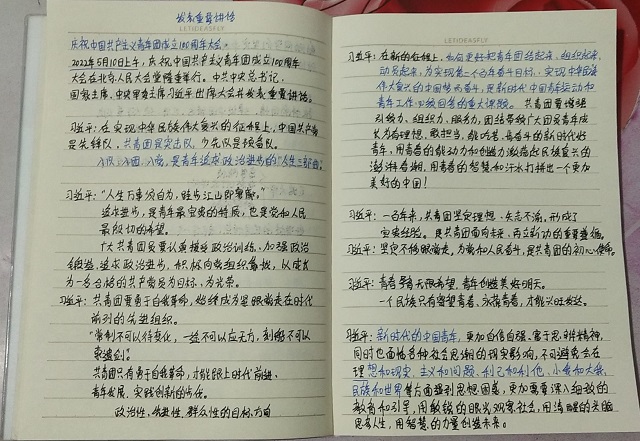 发表重要讲话
LETIDEASFLY
庆祝中国共产主义青年团成立100周年大会。
2022年5月10日上午，庆祝中国共产主义青年团成立100周年
大会在北京人民大会堂隆重举行。中共中央总书记、
国家主席、中央军委主席习近平出席大会并发表重要讲话。
习近平：在实现中华民族伟大复兴的征程上，中国共产党
是先锋队，共青团是突击队，少先队是预备队。
入队、入团、入党，是青年追求政治进步的"人生三部曲"。
习近平："人生万事须自为，跬步江山即寥廓。"
追求进步，是青年最宝贵的特质，也是党和人民
最殷切的希望。
广大共青团员要认真接受政治训练、加强政治
锻造、追求政治进步，积极向党组织靠拢，以成长
为一名合格的共产党员为目标、为光荣。
习近平：共青团要勇于自我革命，始终成为紧跟党走在时代
前列的先进组织。
"常制不可以待变化，一途不可以应无方，刻船不可以
索遗剑。"
共青团只有勇于自我革命，才能跟上时代前进、
青年发展、实践创新的步伐。
政治性、先进性、群众性的目标、方向
LETIDEASFLY
习近平：在新的征程上，如何更好把青年团结起来、组织起来、
动员起来，为实现第二个百年奋斗目标、实现中华民族
伟大复兴的中国梦而奋斗，是新时代中国青年运动和
青年工作必须回答的重大课题。共青团要增强
引领力、组织力、服务力，团结带领广大团员青年成
长为有理想、敢担当、能吃苦、肯奋斗的新时代好
青年，用青春的能动力和创造力激荡起民族复兴的
澎湃春潮，用青春的智慧和汗水打拼出一个更加
美好的中国！
习近平：一百年来，共青团坚定理想、矢志不渝，形成了
宝贵经验。是共青团面向未来、再立新功的重要遵循。
习近平：坚定不移跟党走，为党和人民奋斗，是共青团的初心使命。
习近平：青春孕育无限希望，青年创造美好明天。
一个民族只有寄望青春、永葆青春，才能兴旺发达。
习近平：新时代的中国青年，更加自信自强、富于思辨精神，
同时也面临各种社会思潮的现实影响，不可避免会在
理想和现实、主义和问题、利己和利他、小我和大我、
民族和世界等方面遇到思想困惑，更加需要深入细致的
教育和引导，用敏锐的眼光观察社会，用清醒的头脑
思考人生，用智慧的力量创造未来。